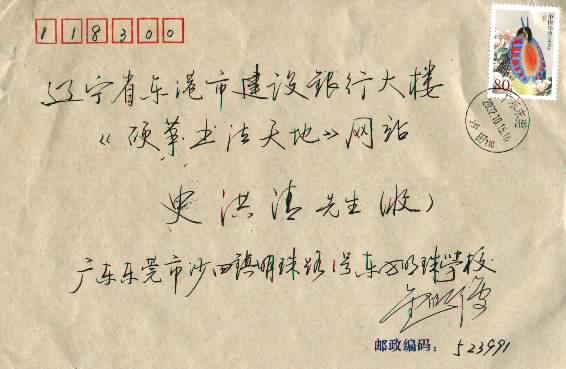 118300
辽宁省东港市建设银行大楼
《硬笔书法天地》网站
史洪清先生(收)
广东东莞市沙田镇明珠路1号东方明珠学校
邮政编码：523991
80
中国邮政